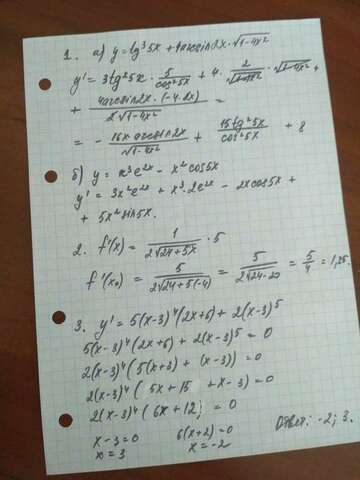 1. а) y = tg³5x + 4arcsin2x·√(1-4x²)
y' = 3tg²5x · 5/cos²5x + 4 · 2/√(1-4x²) · √(1-4x²) +
+ 4arcsin2x·(-4·2x)/2√(1-4x²) =
= - 16x arcsin2x/√(1-4x²) + 15tg²5x/cos²5x + 8
б) y = x³e^2x - x²cos5x
y' = 3x²e^2x + x³·2e^2x - 2xcos5x +
+ 5x²sin5x.
2. f'(x) = 1/2√(24+5x) · 5
f'(x₀) = 5/2√(24+5(-4)) = 5/2√(24-20) = 5/4 = 1,25.
3. y' = 5(x-3)⁴(2x+6) + 2(x-3)⁵
5(x-3)⁴(2x+6) + 2(x-3)⁵ = 0
2(x-3)⁴(5(x+3) + (x-3)) = 0
2(x-3)⁴(5x+15 +x-3) = 0
2(x-3)⁴(6x+12) = 0
x-3=0 6(x+2)=0
x=3 x=-2
Ответ: -2; 3.